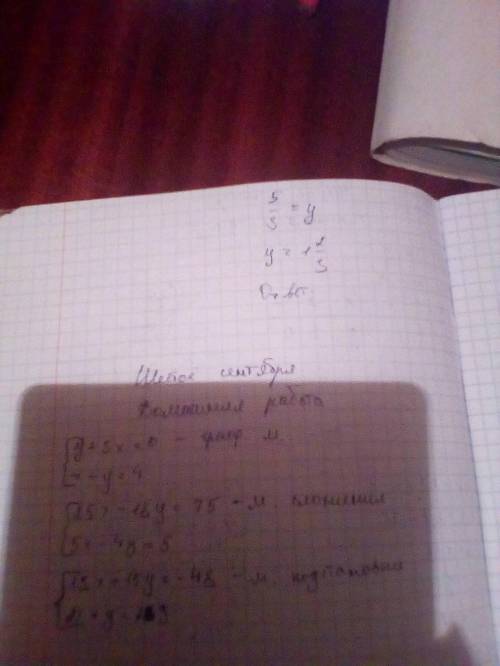 5/3 = y
y = 1 2/3
Ответ:
Шестое сентября
Домашняя работа
y + 3x = 0 - граф. м.
x - y = 4
15x - 18y = 75 - м. сложения
5x - 4y = 5
- м. подстановки